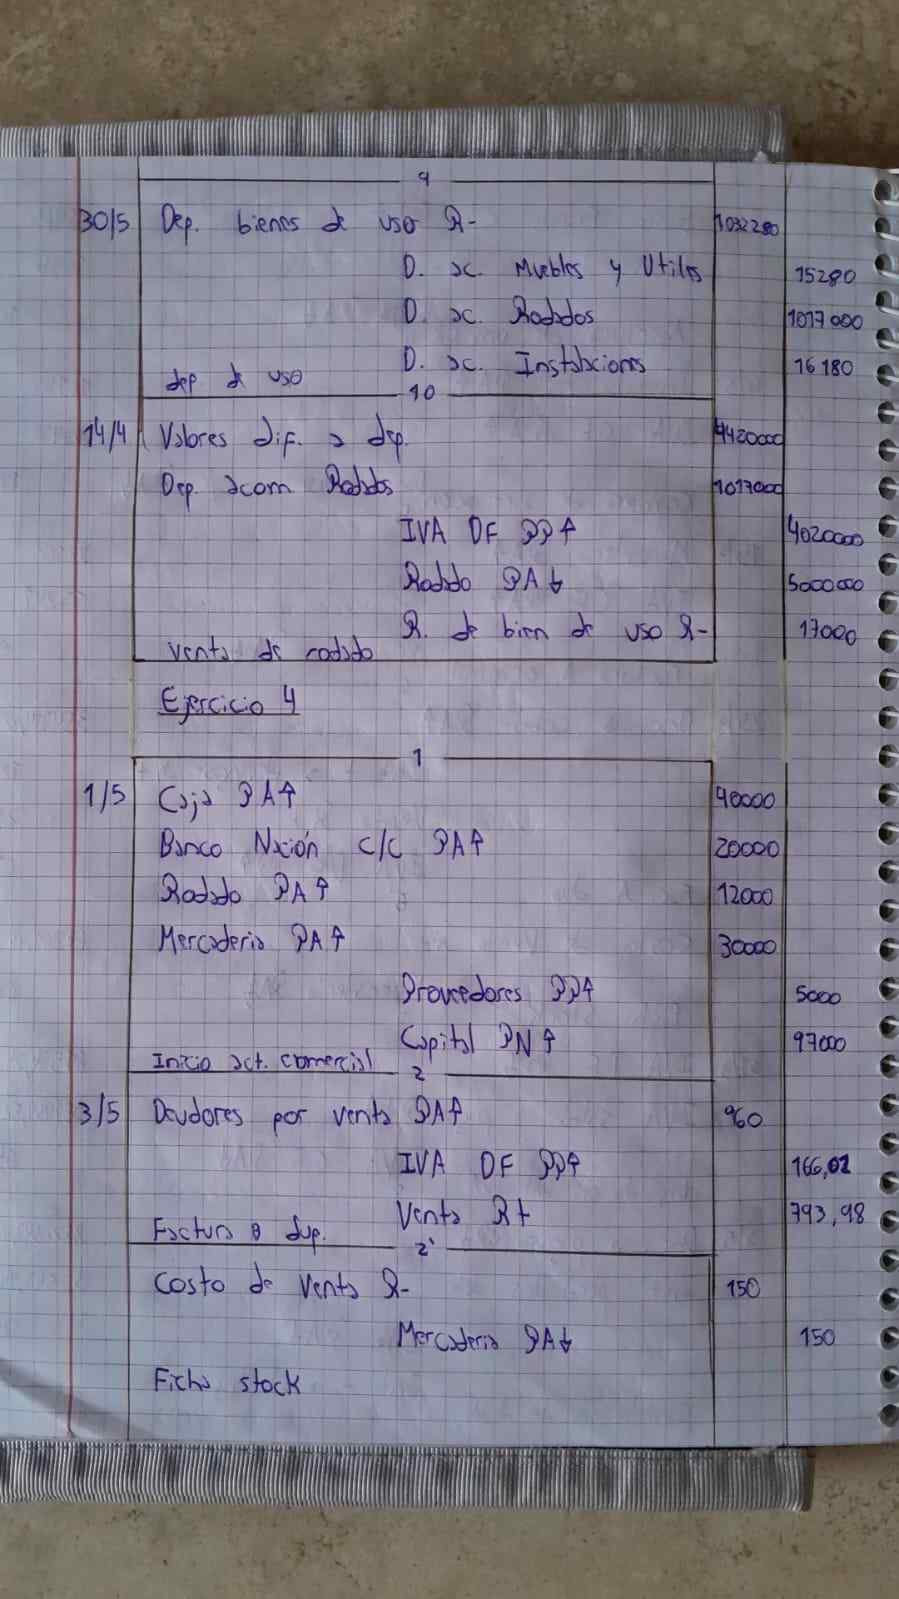 9
30/5 Dep. bienes de uso R- 1032280
D. ac. Muebles y Utiles 15280
D. ac. Rodados 1017000
D. ac. Instalaciones 16180
dep de uso
10
14/4 Valores dif. a dep. 4420000
Dep. acom Rodados 1017000
IVA DF PP↑ 4020000
Rodado PA↓ 5000000
R. de bien de uso R- 17000
Venta de rodado
Ejercicio 4
1
1/5 Caja PA↑ 40000
Banco Nación c/c PA↑ 20000
Rodado PA↑ 12000
Mercaderia PA↑ 30000
Proveedores PP↑ 5000
Capital PN↑ 97000
Inicio act. comercial
2
3/5 Deudores por venta PA↑ 960
IVA DF PP↑ 166,02
Venta R+ 793,98
Factura B dup.
2'
Costo de Venta R- 150
Mercaderia PA↓ 150
Ficha stock